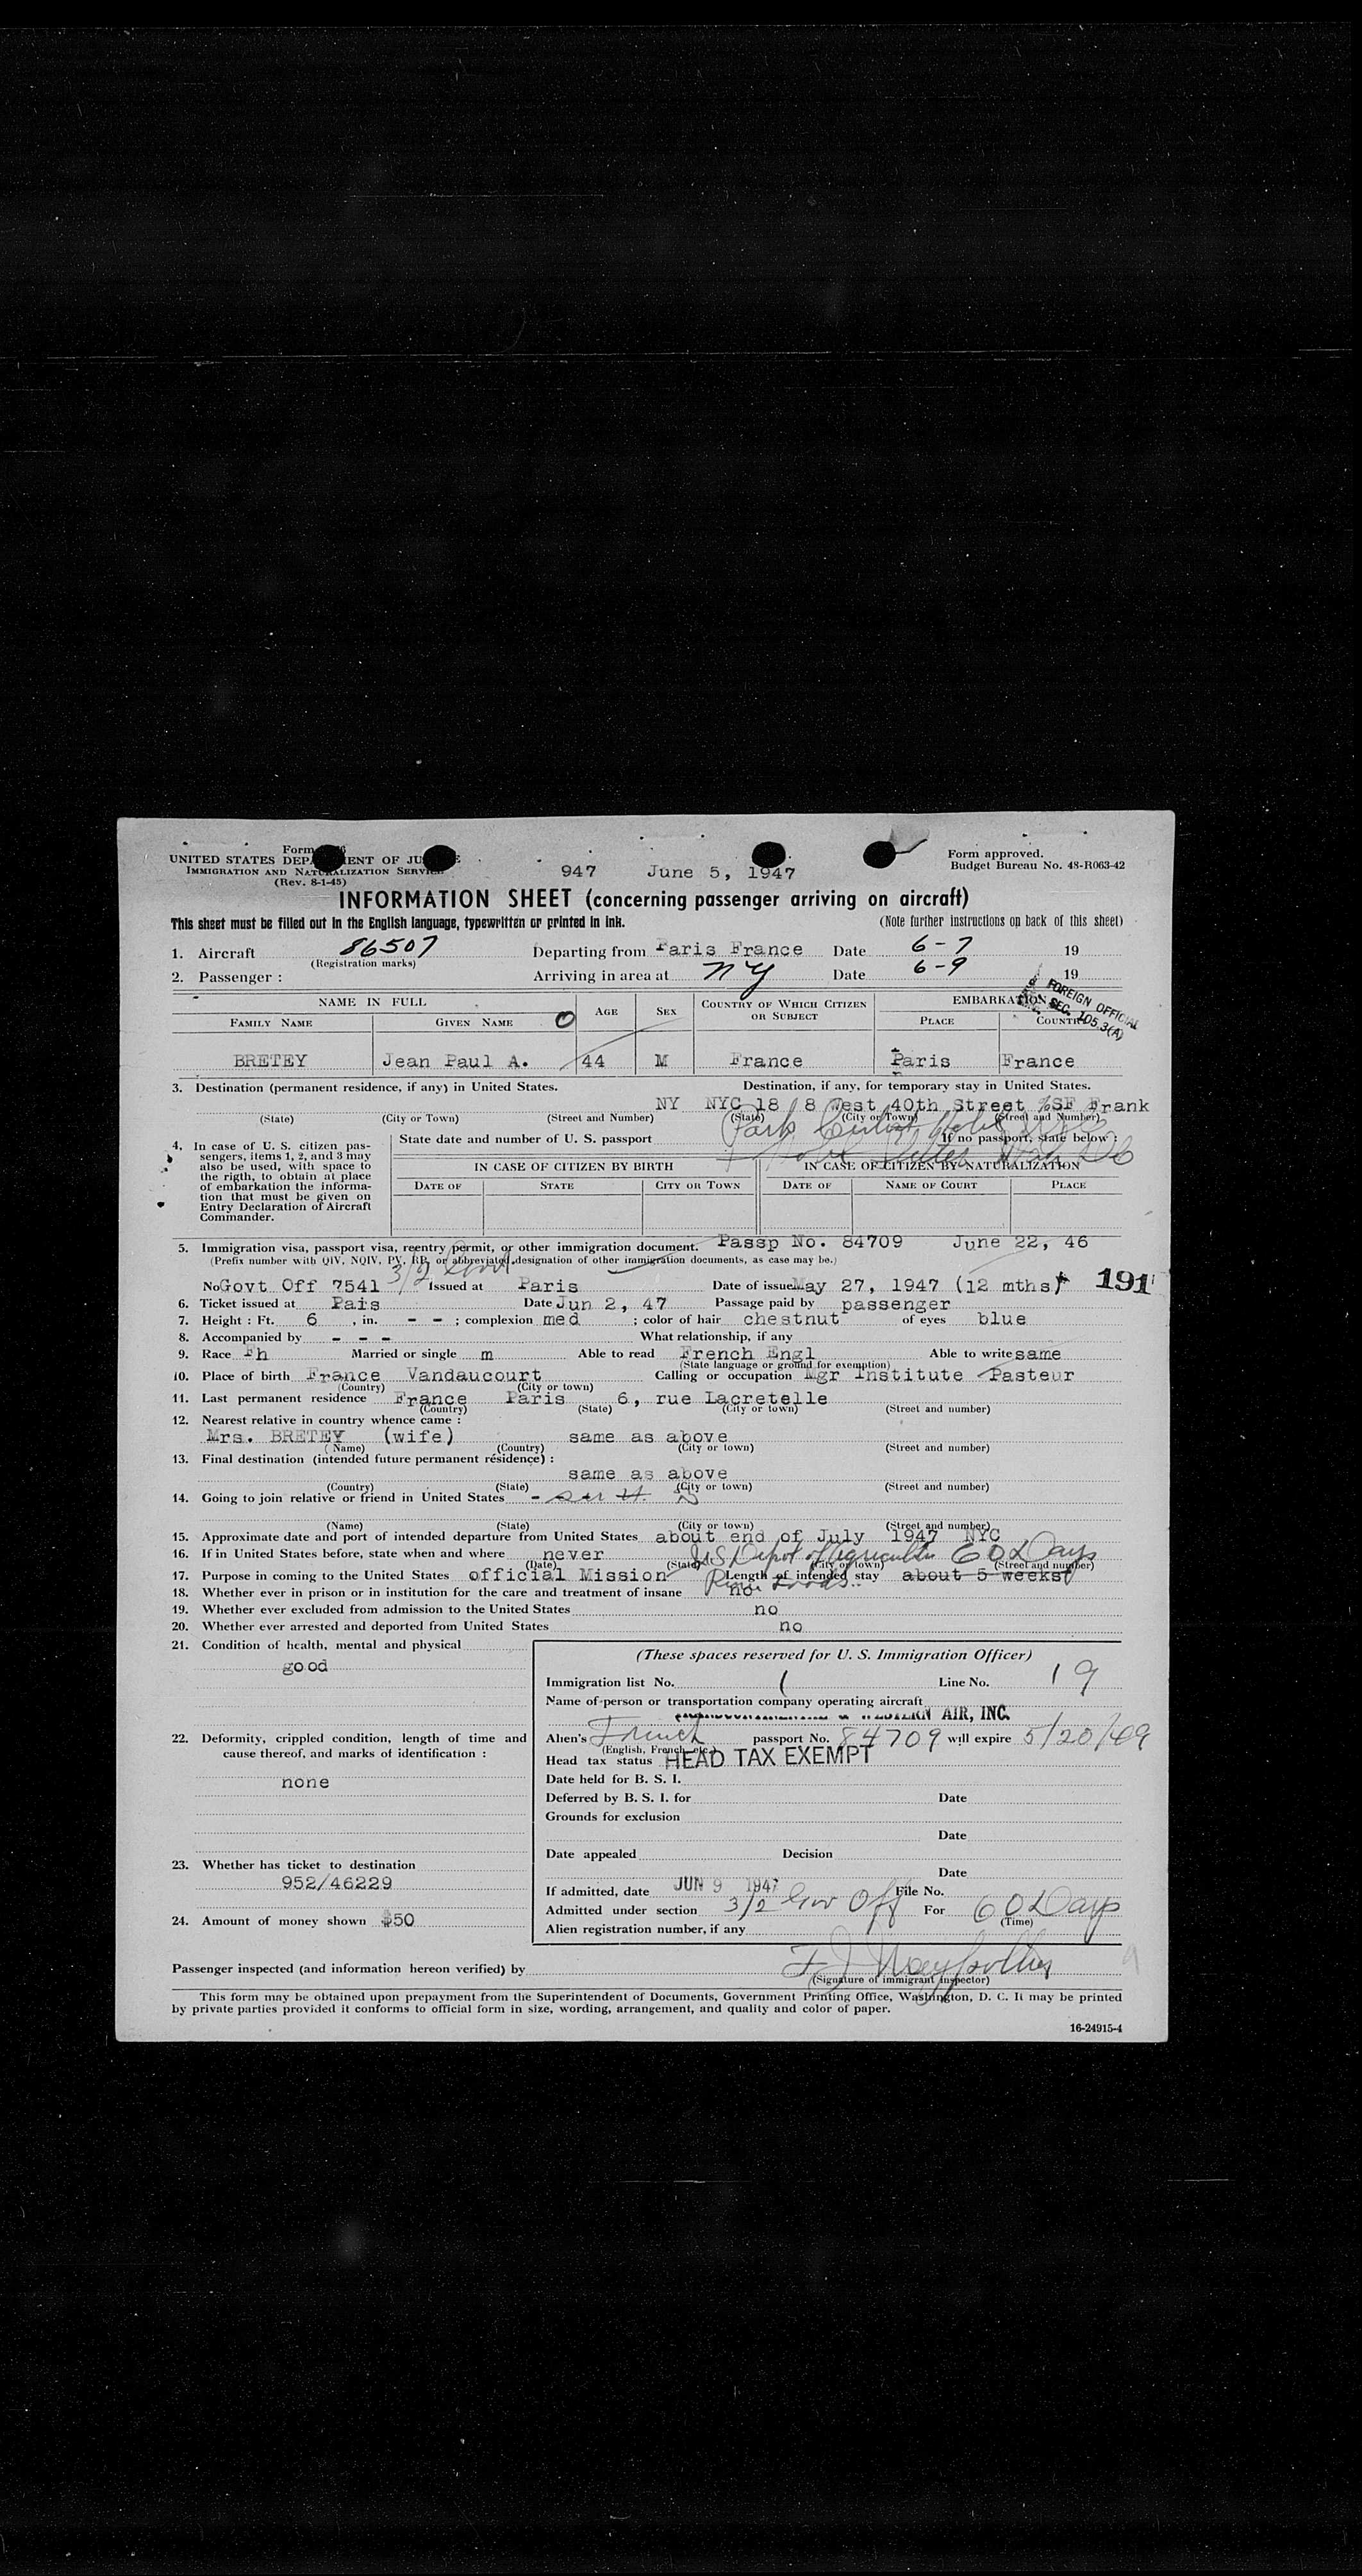 UNITED STATES DEP ENT OF JU E
Form approved.
IMMIGRATION AND NATURALIZATION SERVICE
Budget Bureau No. 48-R063-42
(Rev. 8-1-45)
947 June 5, 1947
INFORMATION SHEET (concerning passenger arriving on aircraft)
This sheet must be filled out in the English language, typewritten or printed in ink.
(Note further instructions on back of this sheet)
1. Aircraft 86507 Departing from Paris France Date 6-7 19
(Registration marks)
2. Passenger : Arriving in area at NY Date 6-9 19
FOREIGN OFFICIAL
SEC. 105.3(A)
NAME IN FULL AGE SEX COUNTRY OF WHICH CITIZEN OR SUBJECT EMBARKATION
FAMILY NAME GIVEN NAME O PLACE COUNTRY
BRETEY Jean Paul A. 44 M France Paris France
3. Destination (permanent residence, if any) in United States. Destination, if any, for temporary stay in United States.
NY NYC 18 8 West 40th Street %SF Frank
(State) (City or Town) (Street and Number) (State) (City or Town) (Street and Number)
Park Hotel
4. In case of U. S. citizen passengers, items 1, 2, and 3 may also be used, with space to the rigth, to obtain at place of embarkation the information that must be given on Entry Declaration of Aircraft Commander.
State date and number of U. S. passport If no passport, state below :
IN CASE OF CITIZEN BY BIRTH IN CASE OF CITIZEN BY NATURALIZATION
DATE OF STATE CITY OR TOWN DATE OF NAME OF COURT PLACE
5. Immigration visa, passport visa, reentry permit, or other immigration document. Passp No. 84709 June 22, 46
(Prefix number with QIV, NQIV, PV, RP, or abbreviated designation of other immigration documents, as case may be.)
3/2 Govt
No Govt Off 7541 Issued at Paris Date of issue May 27, 1947 (12 mths) 191
6. Ticket issued at Pais Date Jun 2, 47 Passage paid by passenger
7. Height : Ft. 6 , in. - - ; complexion med ; color of hair chestnut of eyes blue
8. Accompanied by - - - What relationship, if any
9. Race Fh Married or single m Able to read French Engl Able to write same
(State language or ground for exemption)
10. Place of birth France Vandaucourt Calling or occupation Mgr Institute Pasteur
(Country) (City or town)
11. Last permanent residence France Paris 6, rue Lacretelle
(Country) (State) (City or town) (Street and number)
12. Nearest relative in country whence came :
Mrs. BRETEY (wife) same as above
(Name) (Country) (City or town) (Street and number)
13. Final destination (intended future permanent résidence) :
same as above
(Country) (State) (City or town) (Street and number)
14. Going to join relative or friend in United States -
(Name) (State) (City or town) (Street and number)
15. Approximate date and port of intended departure from United States about end of July 1947 NYC
16. If in United States before, state when and where never U.S. Depot of Agriculture 60 Days
(Date) (State) (City or town) (Street and number)
17. Purpose in coming to the United States official Mission Length of intended stay about 5 weeks
18. Whether ever in prison or in institution for the care and treatment of insane no
19. Whether ever excluded from admission to the United States no
20. Whether ever arrested and deported from United States no
21. Condition of health, mental and physical
good
22. Deformity, crippled condition, length of time and cause thereof, and marks of identification :
none
23. Whether has ticket to destination
952/46229
24. Amount of money shown $50
(These spaces reserved for U. S. Immigration Officer)
Immigration list No. 1 Line No. 19
Name of person or transportation company operating aircraft
TRANSCONTINENTAL & WESTERN AIR, INC.
Alien's French passport No. 84709 will expire 5/20/49
(English, French, etc.)
Head tax status HEAD TAX EXEMPT
Date held for B. S. I.
Deferred by B. S. I. for Date
Grounds for exclusion
Date
Date appealed Decision
Date
If admitted, date JUN 9 1947 File No.
Admitted under section 3/2 Gov Off For 60 Days
(Time)
Alien registration number, if any
Passenger inspected (and information hereon verified) by
(Signature of immigrant inspector)
This form may be obtained upon prepayment from the Superintendent of Documents, Government Printing Office, Washington, D. C. It may be printed
by private parties provided it conforms to official form in size, wording, arrangement, and quality and color of paper.
16-24915-4